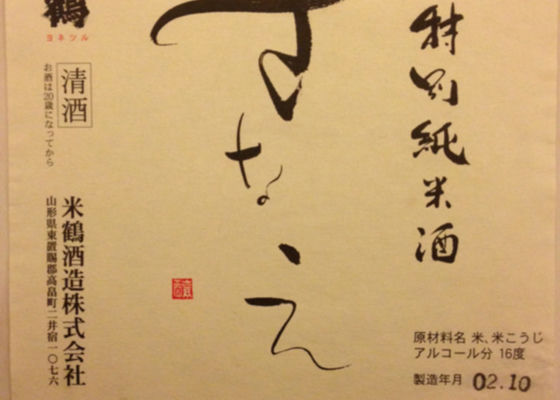 特別純米酒
すなえ
鶴
ヨネツル
清酒
お酒は20歳になってから
米鶴酒造株式会社
山形県東置賜郡高畠町二井宿一〇七六
原材料名 米、米こうじ
アルコール分 16度
製造年月 02.10